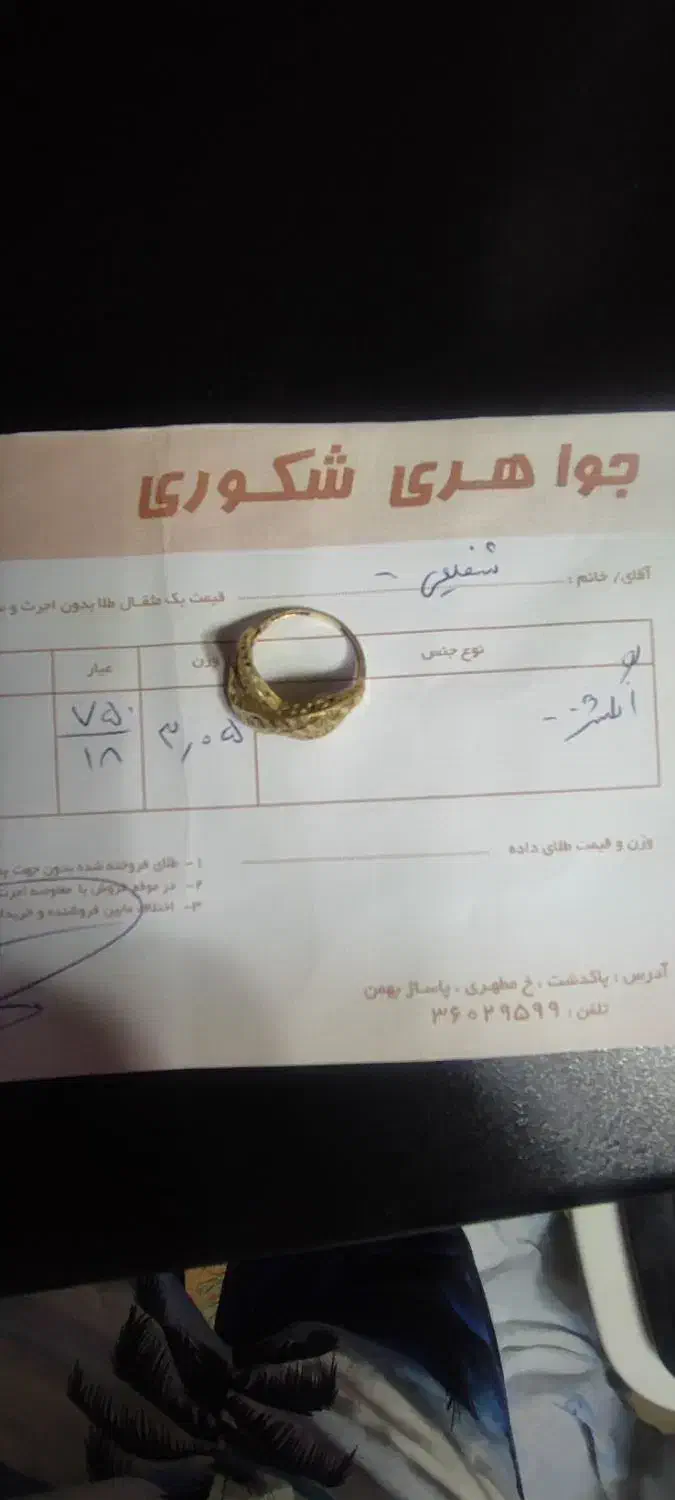 جواهری شکوری
آقای/ خانم : شفیعی
قیمت یک مثقال طلا بدون اجرت و
نوع جنس وزن عیار
انگشتر ۳,۰۵ ۷۵۰
۱۸
وزن و قیمت طلای داده
۱- طلای فروخته شده بدون جهت
۲- در موقع فروش یا معاوضه اجرت
۳- اختلاف مابین فروشنده و خریدار
آدرس : پاکدشت ، خ مطهری ، پاساژ بهمن
تلفن : ۳۶۰۲۹۵۹۹